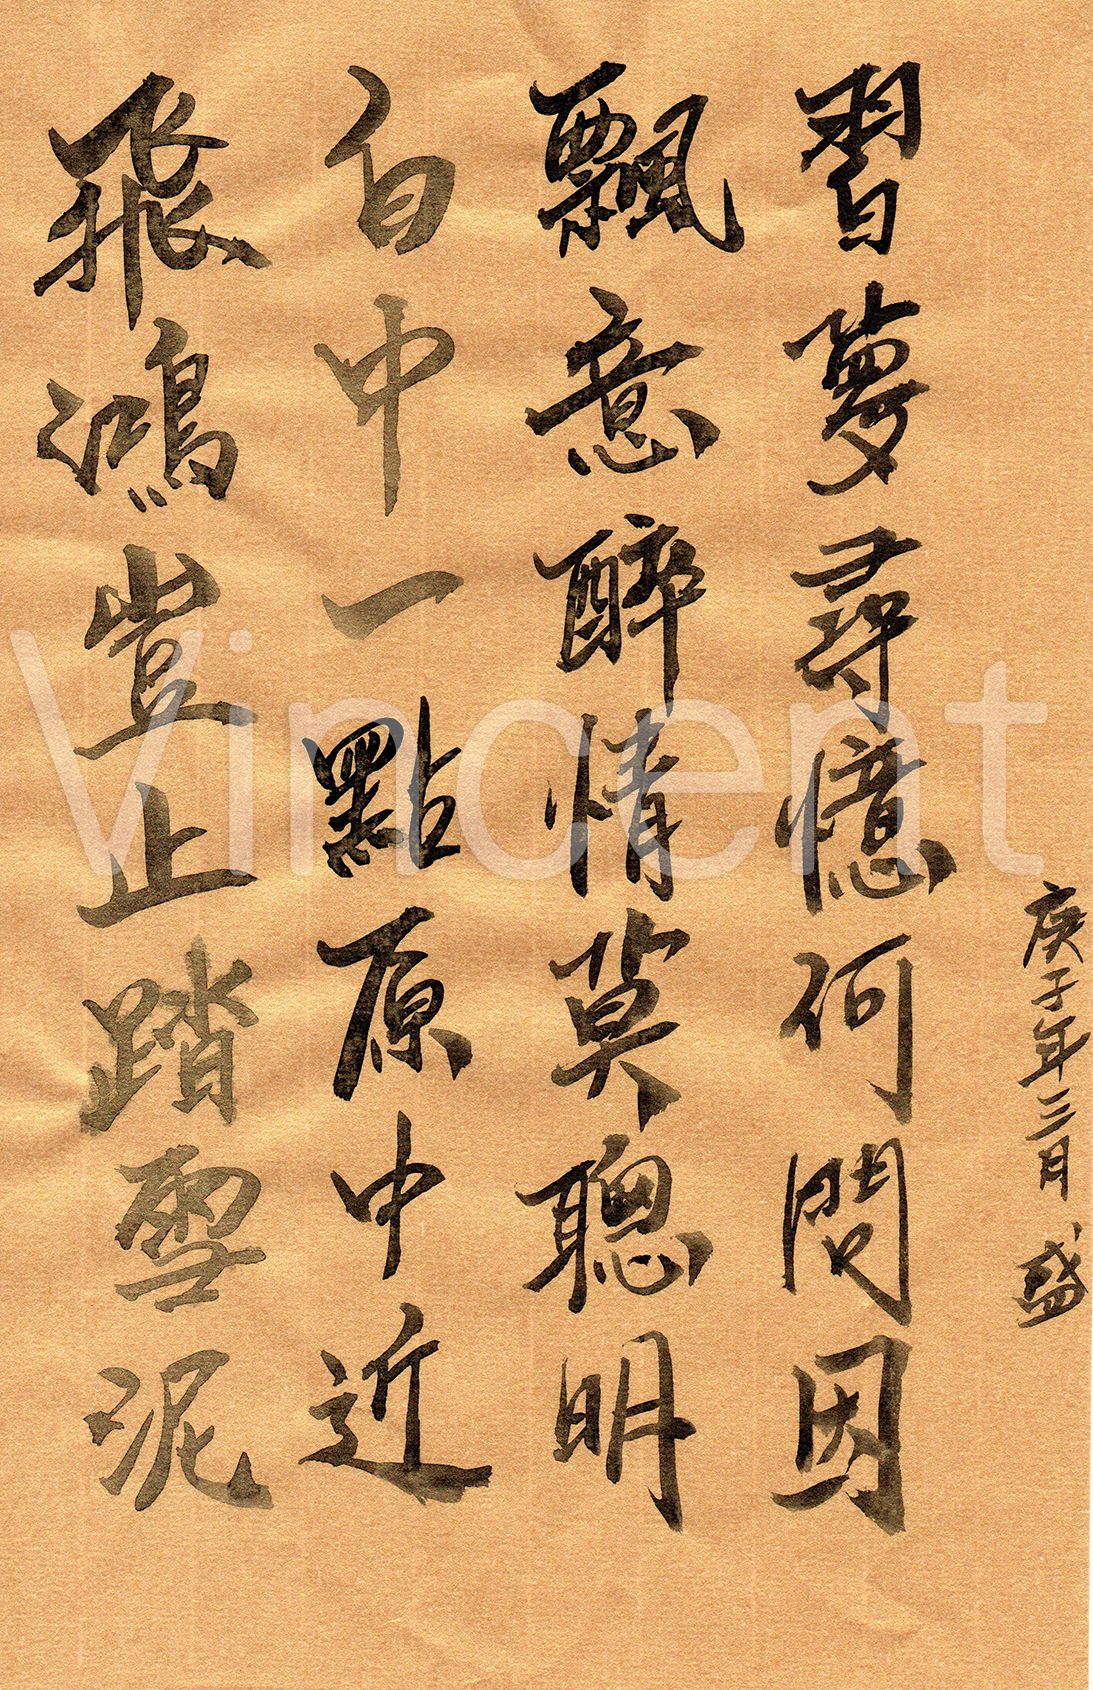 庚子年三月 盛
習夢尋憶何問因
飄意醉情莫聰明
白中一點原中近
飛鴻豈止踏雪泥
Vincent